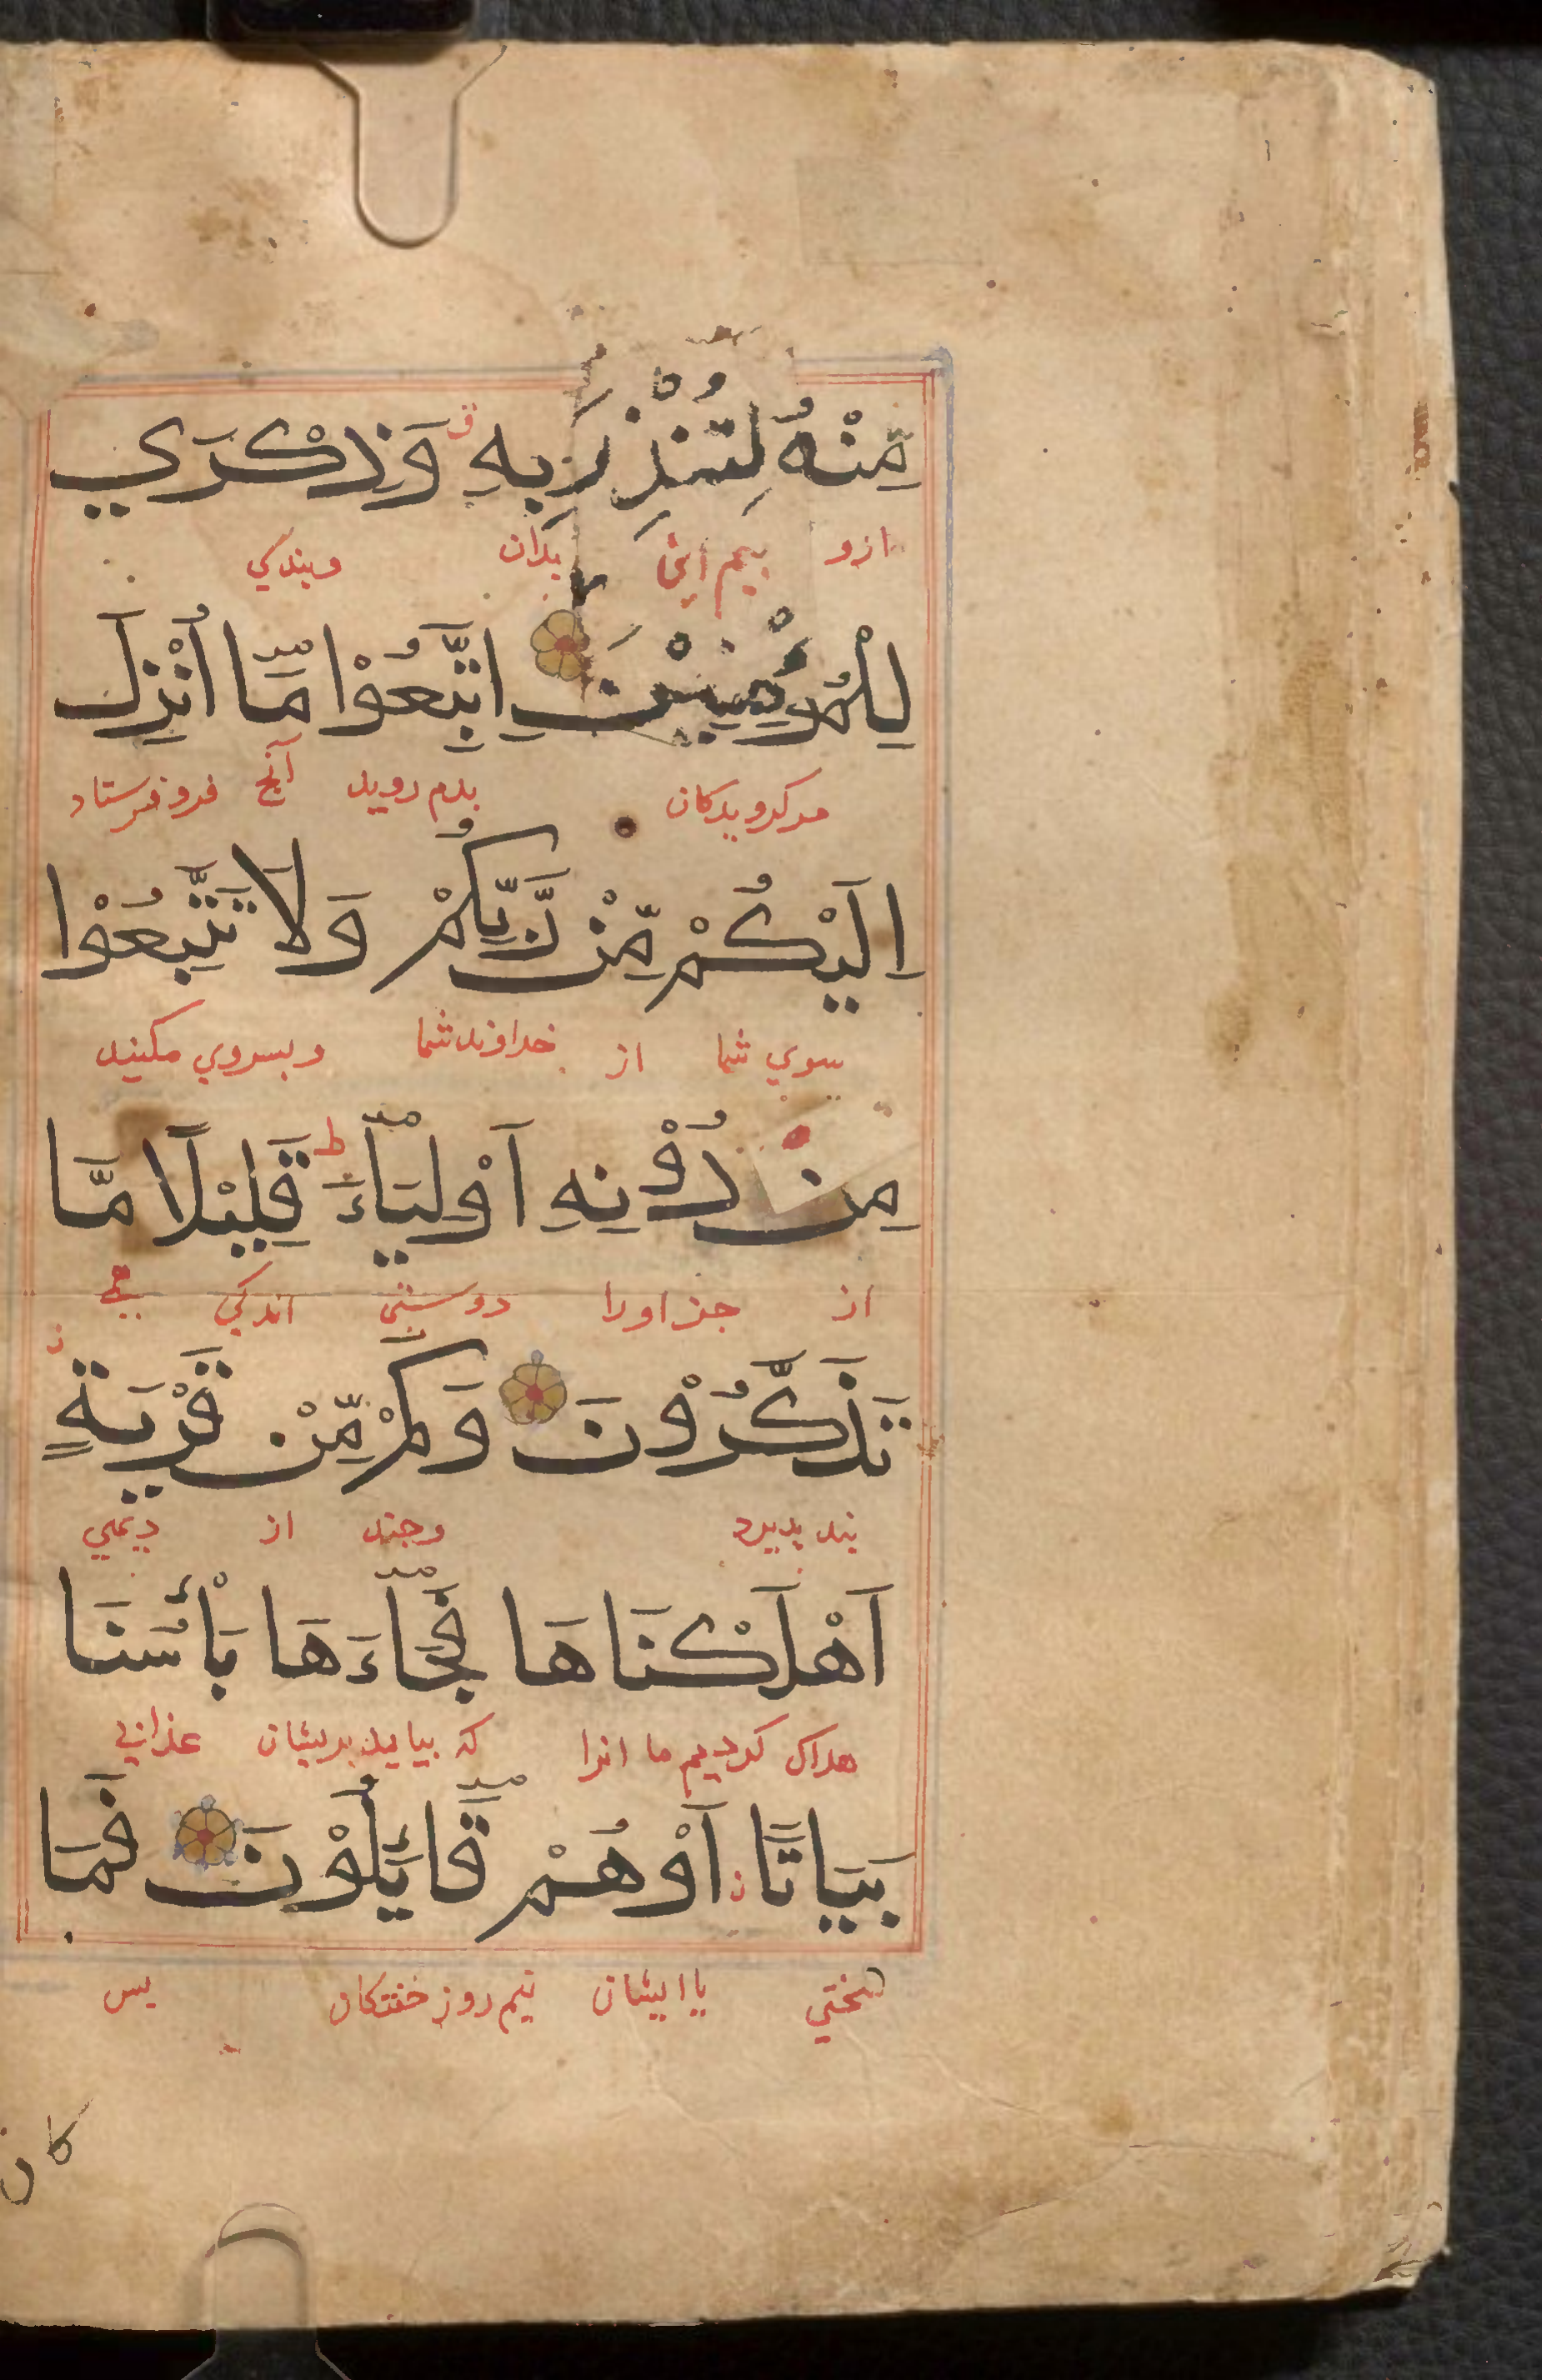 مِّنْهُ لِتُنْذِرَ بِهِ ۛق وَذِكْرَي
ازو بیم اینی بدان وبندکي
لِلْمُؤْمِنِيْنَ اِتَّبِعُوْا مَّا اُنْزِلَ
مر کرویدکان بدم روید آنج فرو فرستاد
اِلَيْكُمْ مِّنْ رَّبِّكُمْ وَلَا تَتَّبِعُوْا
بسوي شما از خداوند شما وبسروي مکنید
مِنْ دُوْنِهِ اَوْلِيَاءَ ط قَلِيْلًا مَّا
از جز اورا دوستنی اندکي
تَذَكَّرُوْنَ وَكَمْ مِّنْ قَرْيَةٍ
بند بدیرد وجند از دیهي
اَهْلَكْنَاهَا فَجَاءَهَا بَأْسُنَا
هداک کردیم ما انرا که بیاید بریشان عذاب
بَيَاتًا اَوْ هُمْ قَائِلُوْنَ فَمَا
سختي یا ایشان نیم روز خفتکان بس
كان